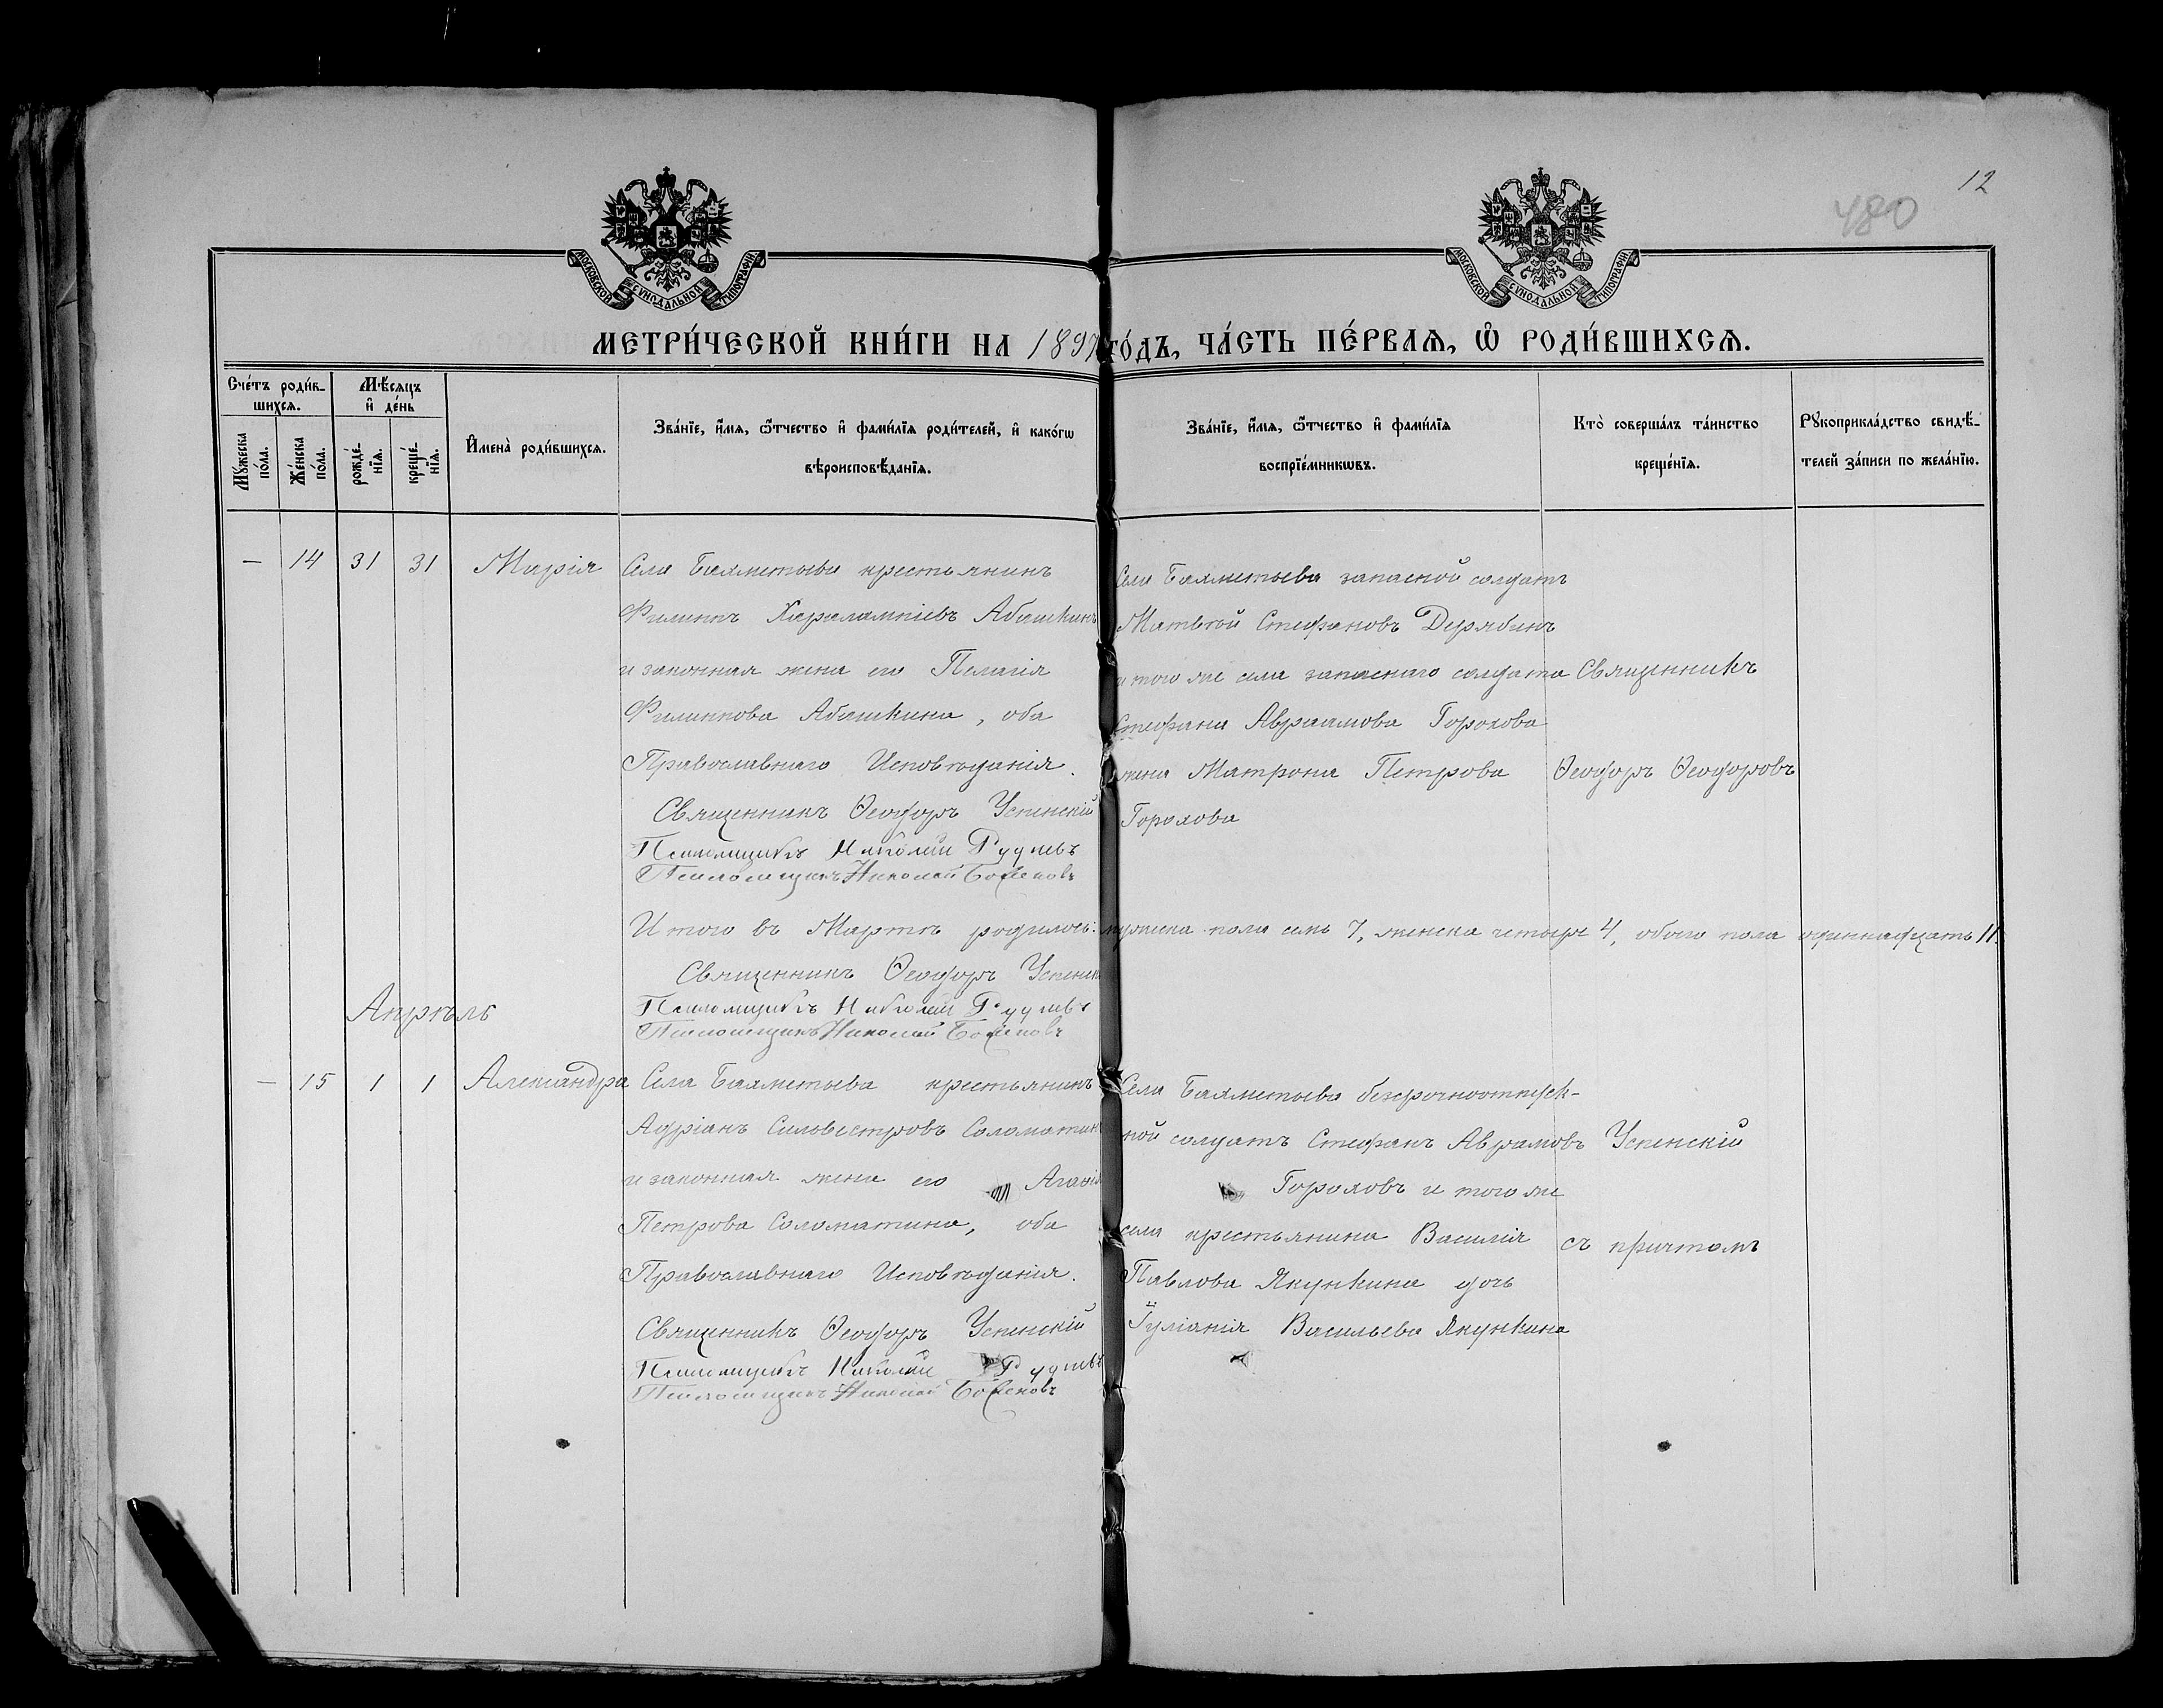 12
480
МОСКОВСКОЙ СУНОДАЛЬНОЙ ТИПОГРАФІИ
МОСКОВСКОЙ СУНОДАЛЬНОЙ ТИПОГРАФІИ
МЕТРИ́ЧЕСКОЙ КНИ́ГИ НА 1897 ГО́ДЪ, ЧА́СТЬ ПЕ́РВАѦ, Ѡ҆ РОДИ́ВШИХСѦ.
Сче́тъ роди́в-
шихсѧ.
Мѣ́сѧцъ
и҆ де́нь
Мꙋ́жеска
по́ла.
Же́нска
по́ла.
рожде́-
нїѧ.
креще́-
нїѧ.
И҆мена̀ роди́вшихсѧ.
Зва́нїе, и҆́мѧ, ѻ҆́тчество и҆ фами́лїѧ роди́телей, и҆ како́гѡ
вѣроисповѣ́данїѧ.
Зва́нїе, и҆́мѧ, ѻ҆́тчество и҆ фами́лїѧ
воспрїе́мникѡвъ.
Кто̀ соверша́лъ та́инство
креще́нїѧ.
Рꙋкоприкла́дство свидѣ́-
телей за́писи по жела́нїю.
— 14 31 31 Марія
Села Бахметьева крестьянинъ
Филиппъ Харалампіевъ Абашкинъ
и законная жена его Пелагія
Филиппова Абашкина, оба
Православнаго Исповѣданія.
Священникъ Ѳеодоръ Успенскій
Псаломщикъ Николай
Псаломщикъ Николай
Села Бахметьева запасной солдатъ
Матвѣй Стефановъ Дерябинъ
и того же села запаснаго солдата
Стефана Авраамова Горохова
жена Матрона Петрова
Горохова
Священникъ
Ѳеодоръ Ѳеодоровъ
Итого въ Мартѣ родилось: мужеска пола семь 7, женска четыре 4, обоего пола одиннадцать 11.
Священникъ Ѳеодоръ Успенскій
Псаломщикъ Николай
Псаломщикъ Николай
Апрѣль
— 15 1 1 Александра
Села Бахметьева крестьянинъ
Адріанъ Сильвестровъ Соломатинъ
и законная жена его
Петрова Соломатина, оба
Православнаго Исповѣданія.
Священникъ Ѳеодоръ Успенскій
Псаломщикъ Николай
Псаломщикъ Николай
Села Бахметьева безсрочноотпуск-
ной солдатъ Стефанъ Аврамовъ
Гороховъ и того же
села крестьянина Василія
Павлова Якункина дочь
Іуліанія Васильева Якункина
Успенскій
съ причтомъ